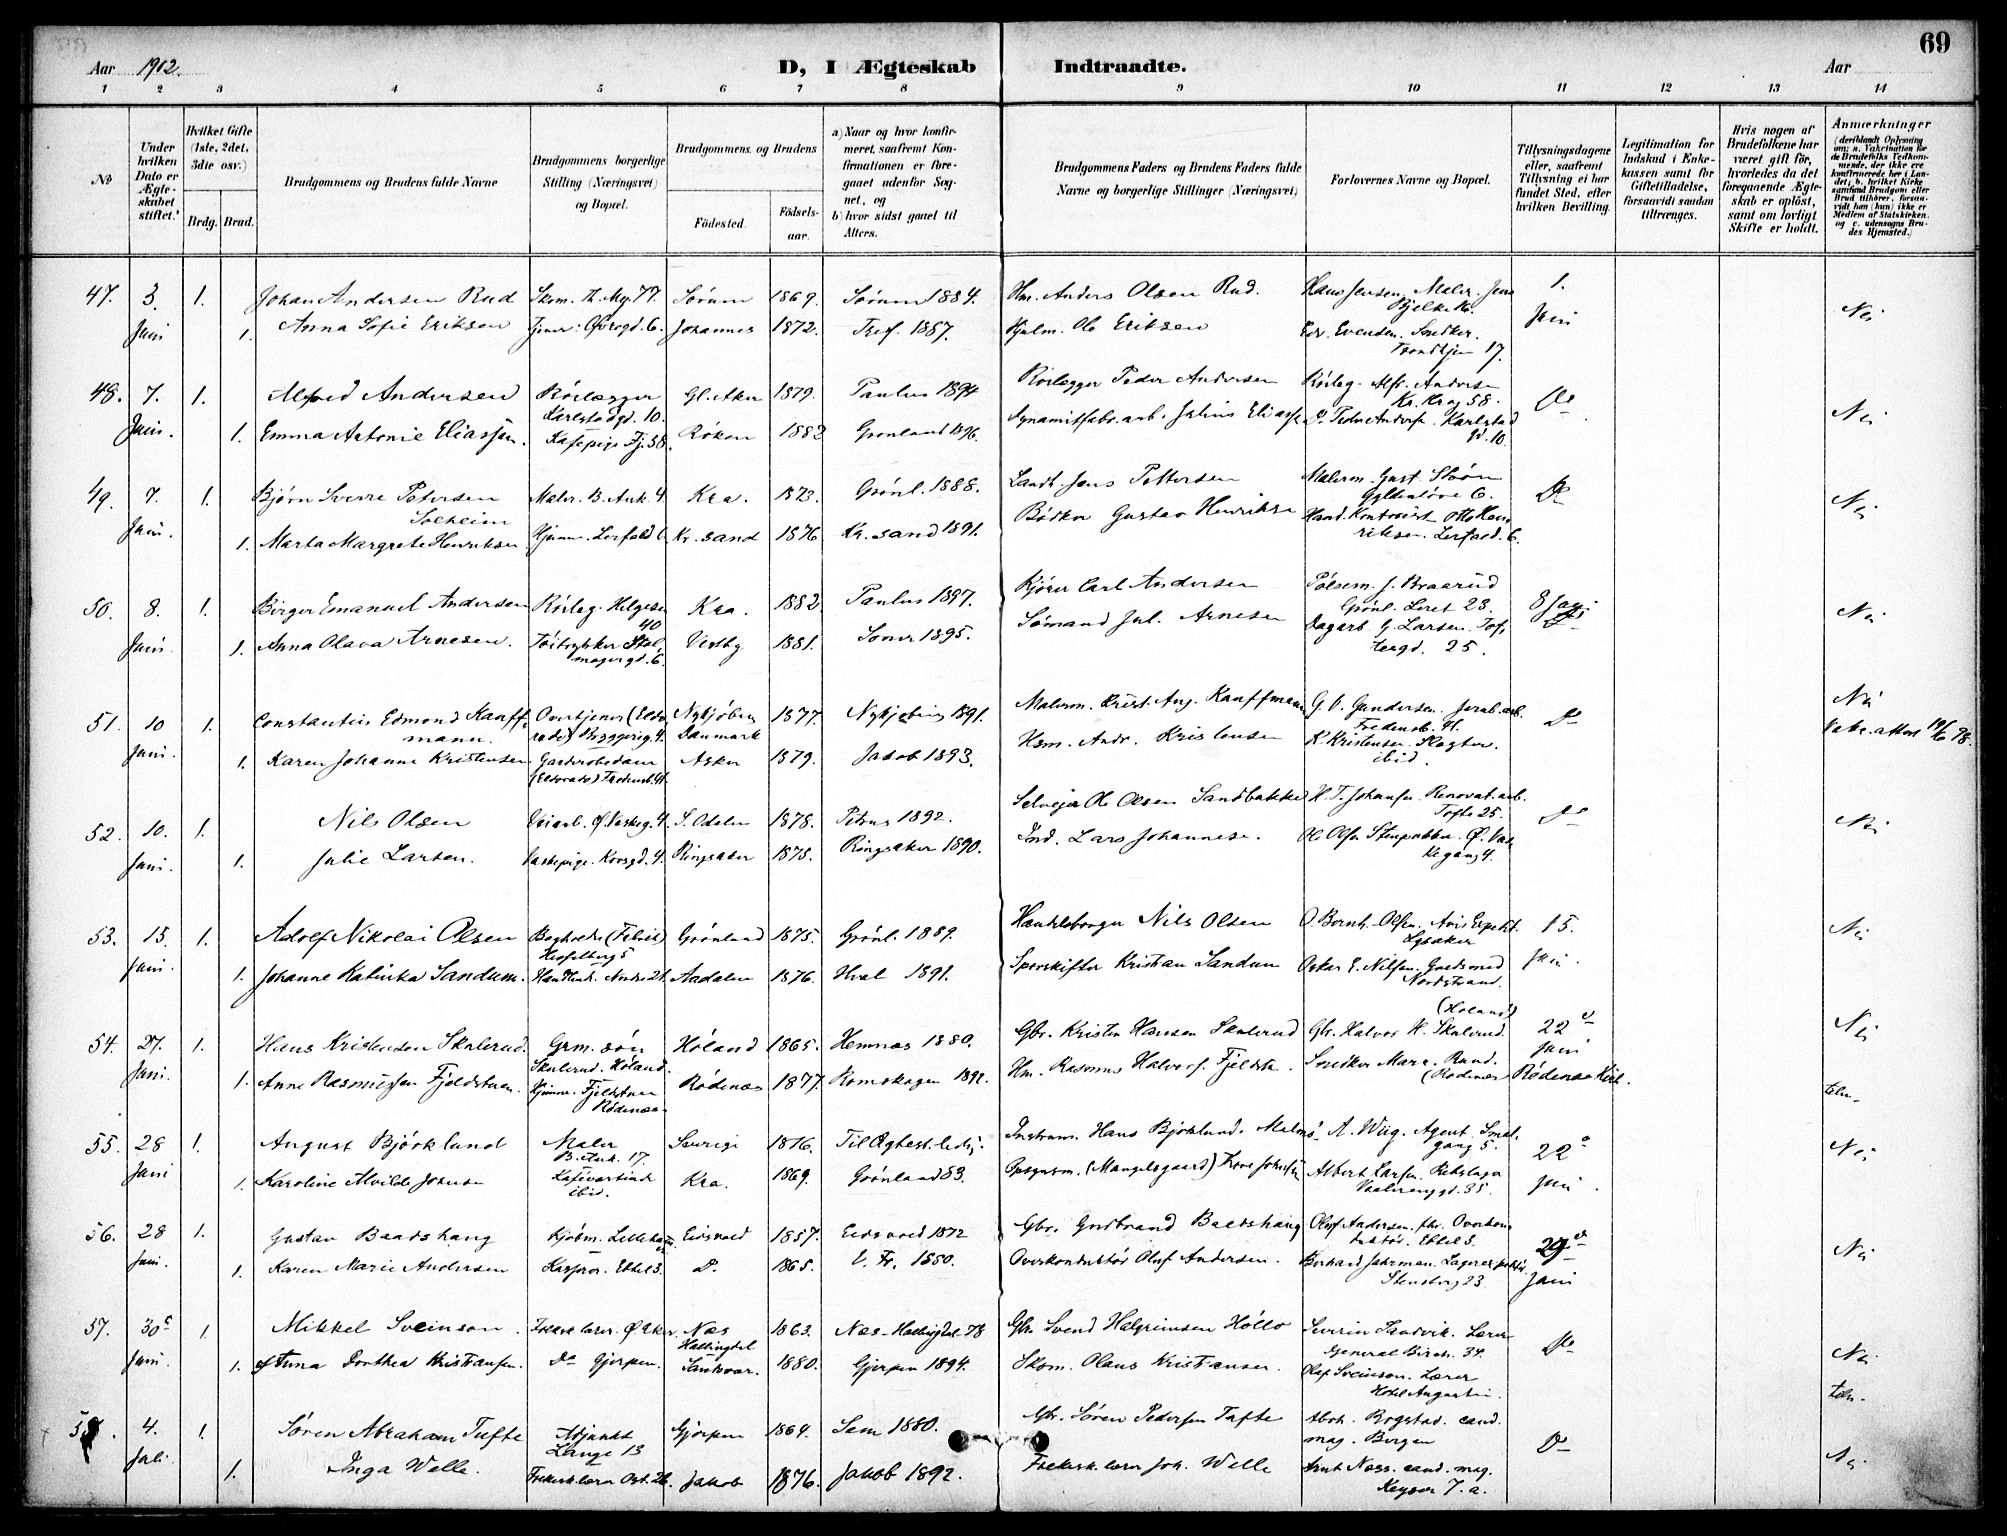 69
Aar 1902. D, I Ægteskab Indtraadte. Aar
1 2 3 4 5 6 7 8 9 10 11 12 13 14
No
Under hvilken Dato er Ægteskabet stiftet.
Hvilket Gifte (1ste, 2det, 3die osv.)
Brdg. Brud.
Brudgommens og Brudens fulde Navne
Brudgommens borgerlige Stilling (Næringsvei) og Bopæl.
Brudgommens og Brudens
Födested. Födselsaar.
a) Naar og hvor konfirmeret, saafremt Konfirmationen er foregaaet udenfor Sognet, og
b) hvor sidst gaaet til Alters.
Brudgommens Faders og Brudens Faders fulde Navne og borgerlige Stillinger (Næringsvei)
Forlovernes Navne og Bopæl.
Tillysningsdagene eller, saafremt Tillysning ei har fundet Sted, efter hvilken Bevilling.
Legitimation for Indskud i Enkekassen samt for Giftetilladelse, forsaavidt saadan tiltrænges.
Hvis nogen af Brudefolkene har været gift för, hvorledes da det foregaaende Ægteskab er oplöst, samt om lovligt Skifte er holdt.
Anmærkninger
47. 3 Juni 1. Johan Andersen Rud Skom. Th. Mg. 77. Sørum 1869. Sørum 1884. Hm. Anders Olsen Rud. Hans Jensen, Maler. Jens Bjelkes 1. Juni Nei
1. Anna Sofie Eriksen Johannes 1872. Tref. 1887. Ole Eriksen Edv. Evensen. Snedker. Trondhjem 17.
48. 7. Juni. 1. Alfred Andersen Rørlægger Karlstadgd. 10. Gl. Aker 1879. Paulus 1894 Rørlægger Peder Andersen Rørlæg. Alfr. Andersen Kr. Krag 58. Do Nei
1. Emma Antonie Eliassen. Kafepige Fj. 38. Røken 1882 Grønland 1896. Dynamitfabr. arb. Julius Eliassen Peder Andersen Karlstad gd. 10.
49. 7. Juni. 1. Bjørn Sverre Petersen Solheim Maler. B. Ank. 4. Kra. 1873. Grønl. 1888. Landh. Jens Pettersen Malerm. Gust Strøm Gyldenløve 6. Do Nei
1. Marta Margrete Henriksen Hjemme. Leirfald 6. Kr.sand 1876 Kr.sand 1891. Bødker Gustav Henriksen Hand. Kontorist Otto Henriksen. Leirfald. 6.
50. 8. Juni. 1. Birger Emanuel Andersen Rørlæg. Helgesen 40 Kra. 1882 Paulus 1897. Kjører Carl Andersen Pølsem. J. Braarud Grønl. Leret 23. 8 Juni Nei
1. Anna Olava Arnesen. Vestby 1881. Soner 1895. Sømand Jul. Arnesen Dagarb. G. Larsen. Toftesgd. 25.
51. 10 Juni. 1. Constantin Edmond Kauffmann. Overtjener (Eldorado) Bryggerig. 4. Nykjøbing Danmark 1877. Nykjøbing 1891. Malerm. Krist. Aug. Kauffmann G. V. Gundersen. Jernb. arb. Fredensb. 41. Do Nei
Vakc. attest 19/6 78.
1. Karen Johanne Kristensen Garderobedame (Eldorado) Fredensb. 41. Asker 1879. Jakob 1893. Hsm. Andr. Kristensen K. Kristensen. Slagter. ibid.
52. 10. Juni. 1. Nils Olsen Veiarb. Ø. Vaskeg. 4. S. Odalen 1878. Petrus 1892. Selveier Ole Olsen Sandbakken H. T. Johansen. Renovat. arb. Tofte 25. Do Nei
1. Julie Larsen. Vaskepige. Korsgd. 4. Ringsaker 1875. Ringsaker 1890. Ind. Lars Johannesen. Ole Olsen Stenpukker. Ø. Vaskegang 4.
53. 15. Juni. 1. Adolf Nikolai Olsen Bogholder Hesselberg 5 Grønland 1875. Grønl. 1889. Handelsborger Nils Olsen O. Bernh. Olsen. Avis Exped. Lysaker 15. Juni. Nei
1. Johanne Katinka Sandum. Aadalen 1876. Hval 1891. Sporskifter Kristian Sandum Oskar E. Nilsen. Guldsmed Nordstrand.
54. 27. Juni. 1. Hans Kristensen Skulerud. Grm. søn Skulerud. Høland. Høland 1865. Hemnæs 1880. Gbr. Kristen Hansen Skulerud Gbr. Halvor H. Skulerud. (Høland) 22 Juni Nei
1. Anne Rasmussen Fjeldstuen. Hjemme. Fjeldstuen Rødenæs Rødenæs 1877 Komskogen 1892. Hm. Rasmus Halvors. Fjeldstu. Snedker Mara. Rund. (Rødenæs Rødenæs Kirk.
55. 28 Juni 1. August Bjørklund Maler B. Ank. 17. Sverige 1876. Til Ægtesk. ledig. Instrum. Hans Bjørklund. Malmø A. Wiig. Agent. Smalgang 5. 22 Juni Nei
1. Karoline Alvilde Johnsen Kafévertinde ibid. Kra. 1869. Grønland 83. (Mangelsgaard) Albert Larsen. Rebslager Vaalerenggd. 35.
56. 28 Juni. 1. Gustav Baadshaug Kjøbm. Lillehammer Eidsvold 1857. Eidsvold 1872 Gbr. Gudbrand Baadshaug Oluf Andersen. fhv. Overkonduktør. Eckel 3. 29 Juni Nei
1. Karen Marie Andersen Eckel 3. Do. 1865. V. Fr. 1880. Overkonduktør Oluf Andersen. Stensberg 23.
57. 30 Juni. 1. Mikkel Sveinson. Folkesk. lærer. Ø. Aker. Næs Hallingdal 1863. Næs-Hallingdal 78 Gbr. Svend Halgrimsen Hollo Severin Sandvik. Lærer General Birch. 34. Do Nei
1. Anna Dorthea Kristiansen. Do Gjerpen. 1880. Gjerpen 1894. Skom. Olaus Kristiansen Olaf Sveinson. Lærer Hotel Augustin.
58. 4. Juli 1. Søren Abraham Tufte Adjunkt Lange 13 Gjerpen 1864. Sem 1880. Gbr. Søren Pedersen Tufte Rogstad. cand. mag. Bergen Do Nei
1. Inga Welle. Folkesk. lærer. Jakob 1876. Jakob 1892. Folkesk. lærer Joh. Welle Arnt Næss. cand. mag. Keyser 7. a.